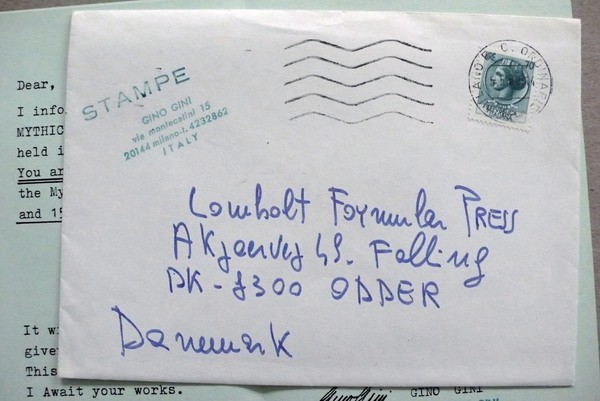 Dear,
I info
MYTHIC
held i
You ar
the My
and 15
STAMPE
GINO GINI
via montecatini 15
20144 milano-t.4232862
ITALY
Lomholt Formular PRESS
AKjaervej 49. Falling
DK-8300 ODDER
Danemark
It wi
give
This
I Await your works.
GINO GINI